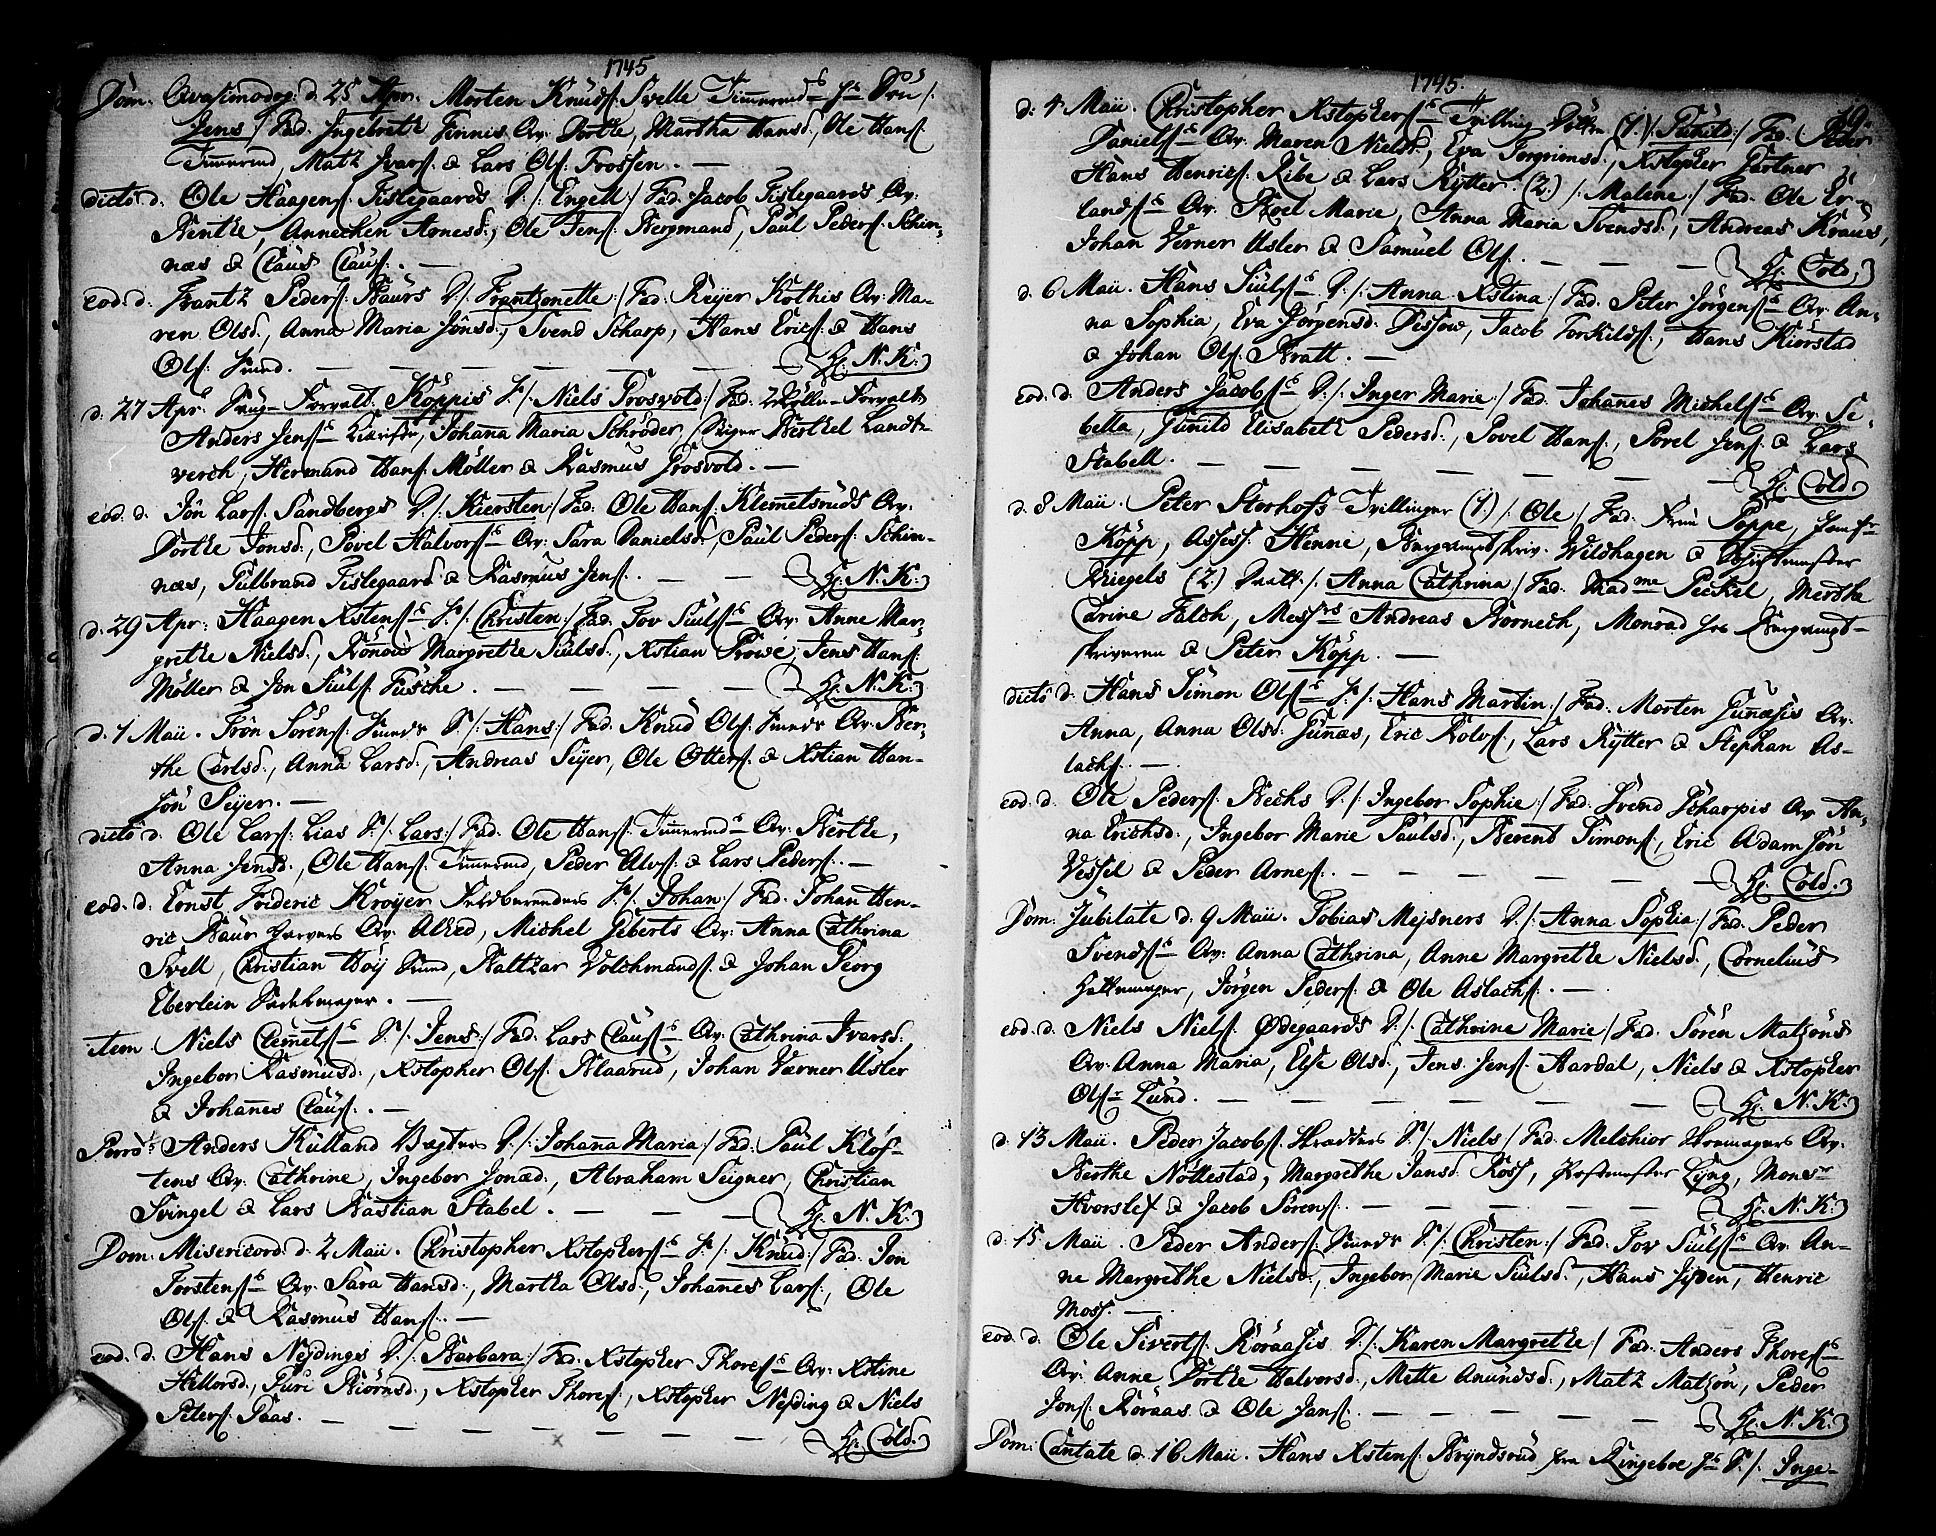 1745
Dom. Qvasimodog: d. 25 Apr. Morten Knudß. Svelle Timmermd
Jens / Fad. Ingebreth Finnis Qv. Dorthe, Martha Hansd., Ole Hanß.
Timmermd, Matz Ivarß. & Lars Olß. Frossen. —
dicto d. Ole Haagenß. Fislegaards D. /: Engell :/ Fad. Jacob Fislegaards Qv.
Benthe, Annechen Arnesd., Ole Jenß. Bergmand, Paul Pederß. Schin-
næs & Claus Clauß. —
eod. d. Frantz Pederß. Baurs D. /: Frantzonette :/ Fad. Reyer Kothis Qv. Ma-
ren Olsd., Anna Maria Jönsd., Svend Scharp, Hans Ericß. & Hans
Olß. — Hr. N. K.
d. 27 Apr. Forvalt. Köppis S. /: Niels Frosvold :/ Fad. Forvalt
Anders Jenß., Johanna Maria Schröder, Berthel Landt-
verch, Hermand Hanß. Möller & Rasmus Grosvold. —
eod. d. Jön Larß. Sandbergs D. /: Kiersten :/ Fad. Ole Hanß. Klemmetsruds Qv.
Dorthe Jonsd., Povel Halvorß. Qv. Sara Danielsd., Paul Pederß. Schin-
næs, Gulbrand Fislegaard & Rasmus Jenß. — Hr. N. K.
d. 29 Apr. Haagen Xstenß. S. /: Christen :/ Fad. Tov Siulß. Qv. Anne Mar-
grethe Nielsd., Rönou Margrethe Siulsd., Xstian Prowe, Jens Hanß.
Möller & Jon Siulß. Fusche. — Hr. N. K.
d. 1 Maii. Trön Sörenß. S. /: Hans :/ Fad. Knud Olß. Qv. Ber-
the Carlsd., Anna Larsd., Andreas Seyer, Ole Otterß. & Xstian Han-
Seyer. —
dicto d. Ole Larß. Lias S. /: Lars :/ Fad. Ole Hanß. Timmermd Qv. Berthe,
Anna Jensd., Ole Hanß. Timmermd, Peder Alvß. & Lars Pederß. —
eod. d. Ernst Frideric Kröyer S. /: Johan :/ Fad. Johan Hen-
ric Baur Qv. Alhed, Michel Geberts Qv. Anna Cathrina
Svell, Christian Höy, Baltzar Volchmandß. & Johan Georg
Eberlein. —
item Niels Clemetß. S. /: Jens :/ Fad. Lars Clauß. Qv. Cathrina Ivarsd.,
Ingebor Rasmusd., Xstopher Olß. Blaarud, Johan Værner Uster
& Johannes Clauß. —
Anders Kulland Vægters D. /: Johanna Maria :/ Fad. Paul Klöf-
tens Qv. Cathrine, Ingebor Jonæd., Abraham Seigner, Christian
Svingel & Lars Bastian Stabel. — Hr. N. K.
Dom. Misericord. d. 2 Maii. Christopher Xstopherß. S. /: Knud :/ Fad. Jon
Torstenß. Qv. Sara Hansd., Martha Olsd., Johannes Larß., Ole
Olß. & Rasmus Hanß. —
eod. d. Hans Neydings D. /: Barbara :/ Fad. Xstopher Thoreß. Qv. Xstine
Hellersd., Guri Biörnsd., Xstopher Thoreß., Xstopher Neyding & Niels
Peterß. Paas. — Hr. Cold.
1745.
19.
d. 4 Maii. Christopher Xstopherß. Tvilling Döttre (1.) /: Gunild :/ Fad. Peder
Danielß. Qv. Maren Nielsd., Eva Torgrimsd., Xstopher Gartner
Hans Henricß. Ribe & Lars Rytter. (2) /: Malene :/ Fad. Ole Er-
landß. Qv. Axel Marie, Anna Maria Svendsd., Andreas Kraus,
Johan Verner Uster & Samuel Olß. — Hr. Cold.
d. 6 Maii. Hans Siulß. D. /: Anna Xstina :/ Fad. Peter Jörgenß. Qv. An-
na Sophia, Eva Jörgensd. Dissow, Jacob Torkildß., Hans Kiörstad
& Johan Olß. Bratt. —
eod. d. Anders Jacobß. D. /: Inger Marie :/ Fad. Johannes Michelß. Qv. Se-
bella, Gunild Elisabeth Pedersd., Povel Hanß., Povel Jenß. & Lars
Stabell. — Hr. Cold.
d. 8 Maii. Peter Storhofs Tvillinger (1) /: Ole / Fad. Frue Poppe, Jomfr
Köpp, Assess. Henne, Bergraadskriv. Wildhagen &
Kriegels (2) /: Anna Cathrina :/ Fad. Madme Peckel, Merthe
Carine Falch, Messrs Andreas Bornech, Monrad
skriveren & Peter Köpp. —
dicto d. Hans Simon Olß. S. /: Hans Martin :/ Fad. Morten Gunæsis Qv.
Anna, Anna Olsd. Gunæs, Eric Rolvß., Lars Rytter & Stephan As-
lachß. —
eod. d. Ole Pederß. Bechs D. /: Ingebor Sophie :/ Fad. Svend Scharpis Qv. An-
na Erichsd., Ingebor Marie Paulsd., Berent Simonß., Eric Adam Jön
Vessel & Peder Arneß. — Hr. Cold.
Dom. Jubilate d. 9 Maii. Tobias Mejsners D. /: Anna Sophia :/ Fad. Peder
Svendß. Qv. Anna Cathrina, Anne Margrethe Nielsd., Cornelius
Hattemager, Jörgen Pederß. & Ole Aslachß. —
eod. d. Niels Nielß. Ødegaards D. /: Cathrine Marie :/ Fad. Sören Matzöns
Qv. Anna Maria, Else Olsd., Jens Jenß. Aardal, Niels & Xstopher
Olß. Lund. — Hr. N. K.
d. 13 Maii. Peder Jacobß. S. /: Niels / Fad. Melchior Qv.
Berthe Nöttestad, Margrethe Jansd. Ross, Postmester Lyng, Monsr
Hvorslef & Jacob Sörenß. — Hr. N. K.
d. 15 Maii. Peder Anderß. S. /: Christen :/ Fad. Tov Siulß. Qv. An-
ne Margrethe Nielsd., Ingebor Marie Siulsd., Hans Jyden, Henric
Moss. —
eod. d. Ole Sivertß. Röraasis D. /: Karen Margrethe :/ Fad. Anders Thoreß.
Qv. Anne Dorthe Halvorsd., Mette Amundsd., Matz Matzön, Peder
Jonß. Röraas & Ole Janß. — Hr. N. K.
Dom. Cantate d. 16 Maii. Hans Xstenß. Bryndsrud fra Ringeboe S. /: Inge-